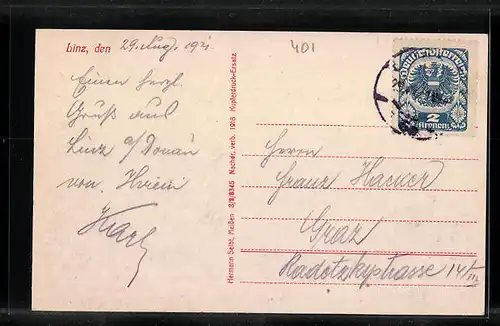 Linz, den 29. Aug. 1921
401
Einen herzl.
Gruß aus
Linz a/Donau
von
Karl
DEUTSCHÖSTERREICH
2
Kronen
Hermann Seibt, Meißen 3/9/8345 Nachdr. verb. 1918 Kupferdruck-Ersatz
Herrn
Franz Hacker
Graz
Radetzkystrasse 14/III